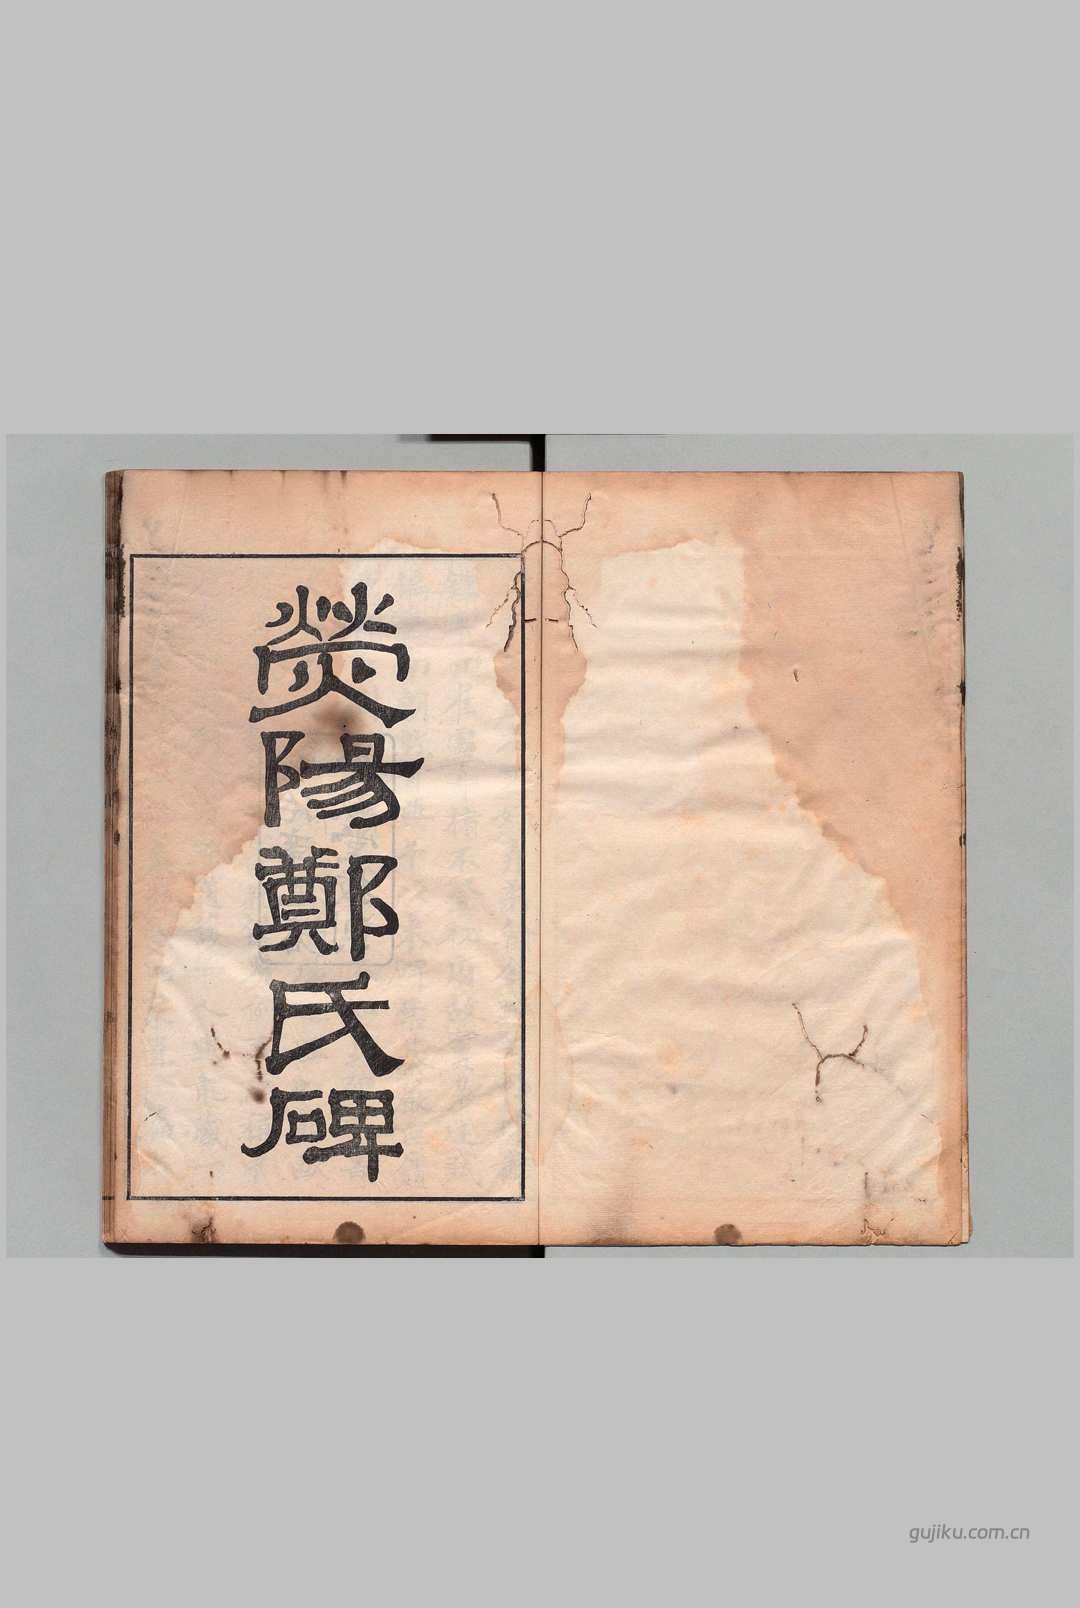 熒陽鄭氏碑
gujiku.com.cn